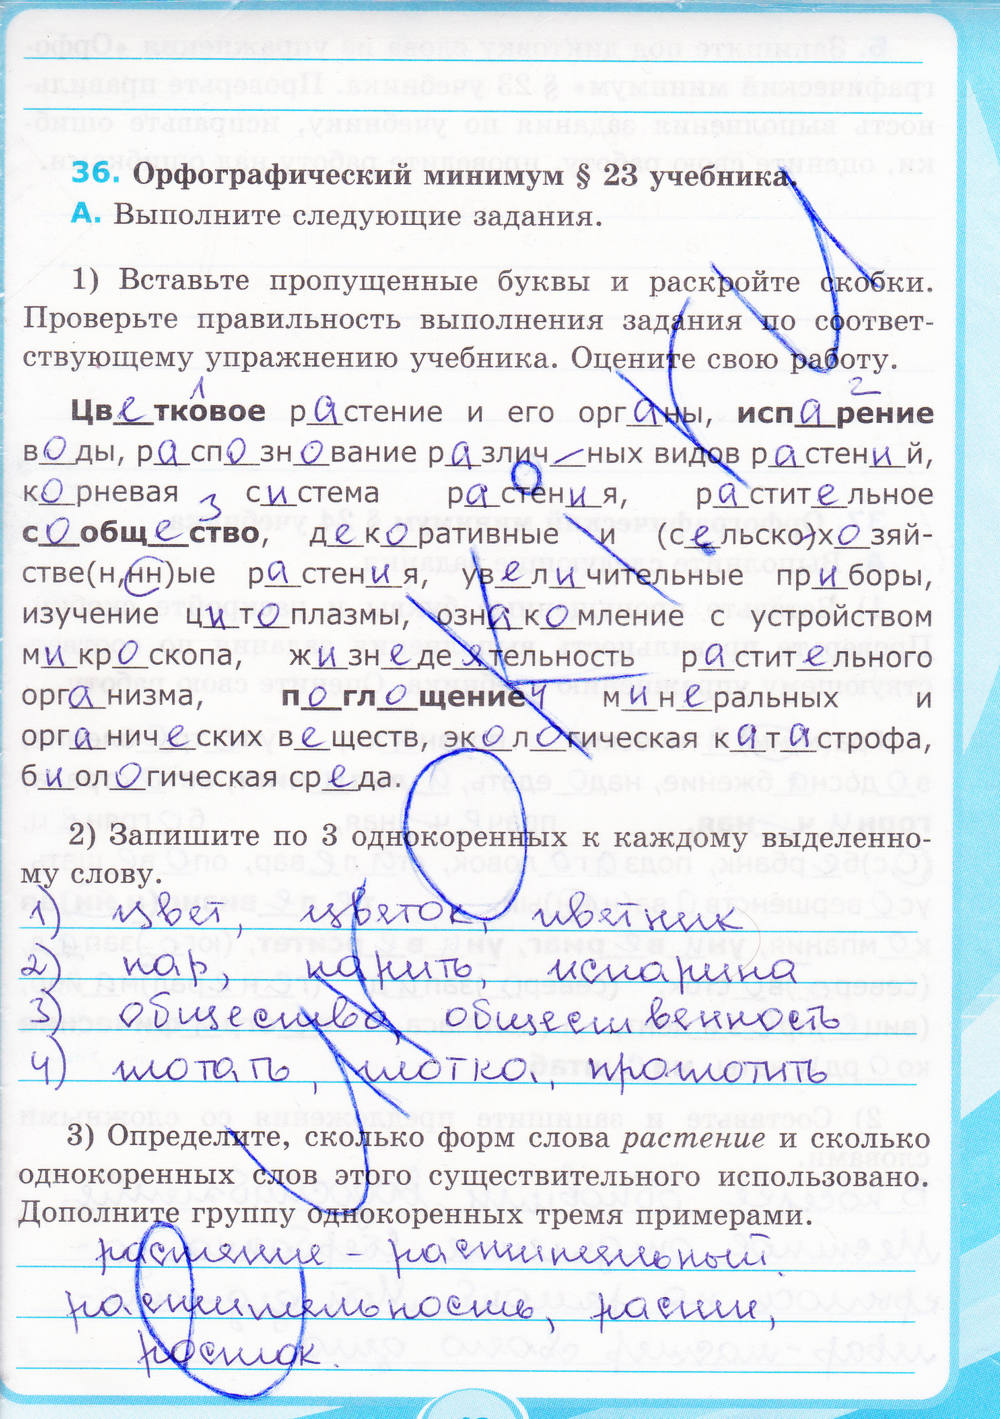 36. Орфографический минимум § 23 учебника.
А. Выполните следующие задания.
1) Вставьте пропущенные буквы и раскройте скобки.
Проверьте правильность выполнения задания по соответ-
ствующему упражнению учебника. Оцените свою работу.
1 2
Цветковое растение и его органы, испарение
воды, распознование различных видов растений,
корневая система растения, растительное
3
сообщество, декоративные и (сельско)хозяй-
стве(н,нн)ые растения, увеличительные приборы,
изучение цитоплазмы, ознакомление с устройством
микроскопа, жизнедеятельность растительного
организма, поглощение 4 минеральных и
органических веществ, экологическая катастрофа,
биологическая среда.
2) Запишите по 3 однокоренных к каждому выделенно-
му слову.
1) цвет, цветок, цветник
2) пар, парить, испарина
3) общество, общественность
4) глотать, глотка, проглотить
3) Определите, сколько форм слова растение и сколько
однокоренных слов этого существительного использовано.
Дополните группу однокоренных тремя примерами.
растение - растительный.
растительность, расти,
росток.